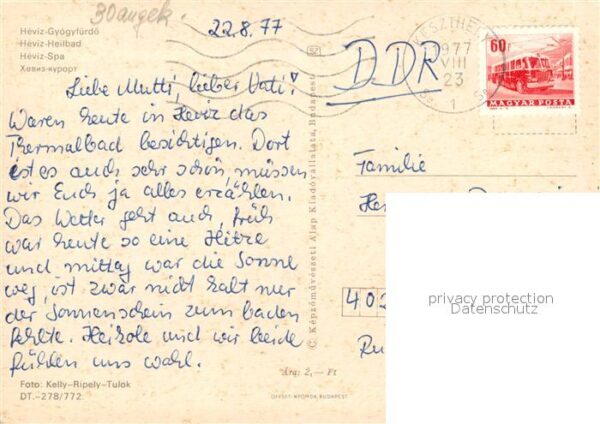 30 angek.
22.8.77
Hévíz-Gyógyfürdő
Hévíz-Heilbad
Hévíz-Spa
Хевиз-курорт
Liebe Mutti, lieber Vati!
Waren heute in Heviz das
Thermalbad besichtigen. Dort
ist es auch sehr schön, müssen
wir Euch ja alles erzählen.
Das Wetter geht auch, früh
war heute so eine Hitze
und mittag war die Sonne
weg, ist zwar nicht kalt nur
der Sonnenschein zum baden
fehlte. und wir beide
fühlen uns wohl.
Foto: Kelly-Ripely-Tulok
DT.-278/772
© Képzőművészeti Alap Kiadóvállalata, Budapest
SZ
Ára: 2,— Ft
OFFSET-NYOMDA, BUDAPEST
DDR
KESZTHELY
1977
VIII
23
1
60f
MAGYAR POSTA
Familie
402
privacy protection
Datenschutz